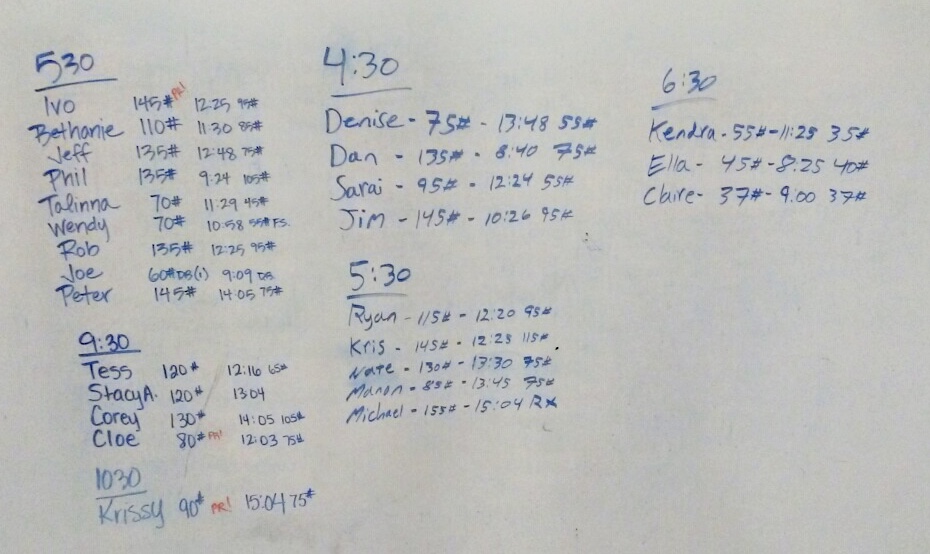 530
Ivo 145# PR! 12:25 95#
Bethanie 110# 11:30 85#
Jeff 135# 12:48 75#
Phil 135# 9:24 105#
Talinna 70# 11:29 45#
Wendy 70# 10:58 55# FS.
Rob 135# 12:25 95#
Joe 60# DB(1) 9:09 DB
Peter 145# 14:05 75#
9:30
Tess 120# 12:16 65#
Stacy A. 120# 13:04
Corey 130# 14:05 105#
Cloe 80# PR! 12:03 75#
1030
Krissy 90# PR! 15:04 75#
4:30
Denise - 75# - 13:48 55#
Dan - 135# - 8:40 75#
Sarai - 95# - 12:24 55#
Jim - 145# - 10:26 95#
5:30
Ryan - 115# - 12:20 95#
Kris - 145# - 12:25 115#
Nate - 130# - 13:30 75#
Manon - 85# - 13:45 75#
Michael - 155# - 15:04 RX
6:30
Kendra - 55# - 11:25 35#
Ella - 45# - 8:25 40#
Claire - 37# - 9:00 37#